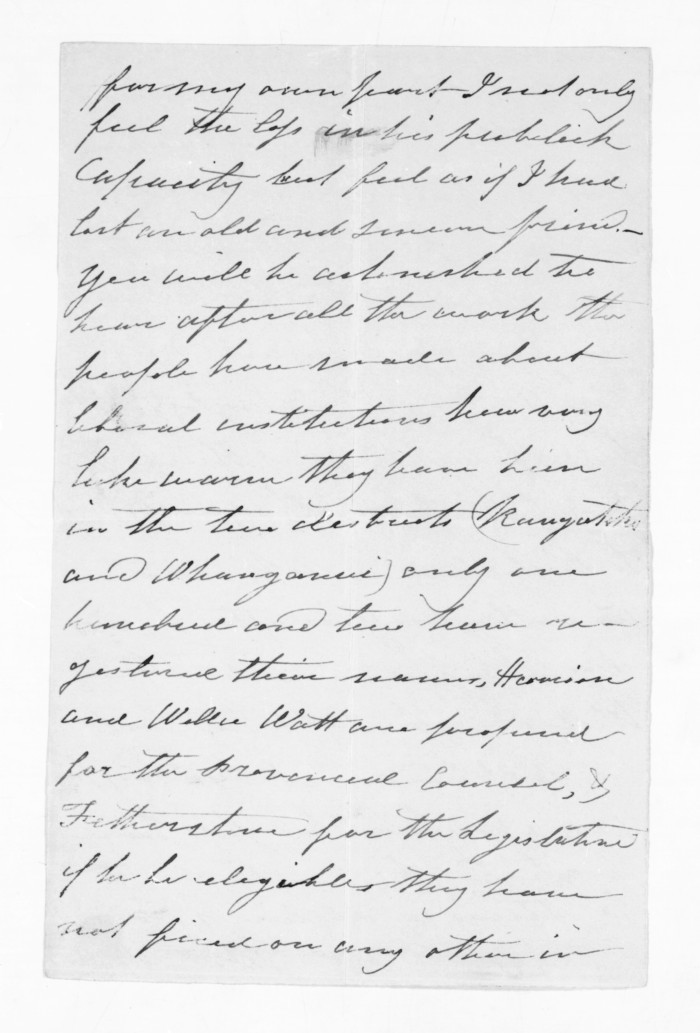 for my own part I not only
feel the loss in his publick
Capacity but feel as if I had
lost an old and sincere friend. –
you will be astonished to
hear after all the work the
people have made about
liberal institutions how very
luke warm they have been
in the two districts (Rangitikei
and Whanganui) only one
hundred and two have re-
gestered their names, Harrison
and Willie Watt are proposed
for the Provencial Counsel, &
Fetherstone for the Legislative
if he be elegible, they have
not fixed on any other in